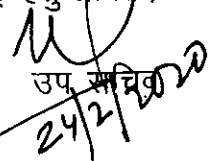 उप सचिव
24/2/2020